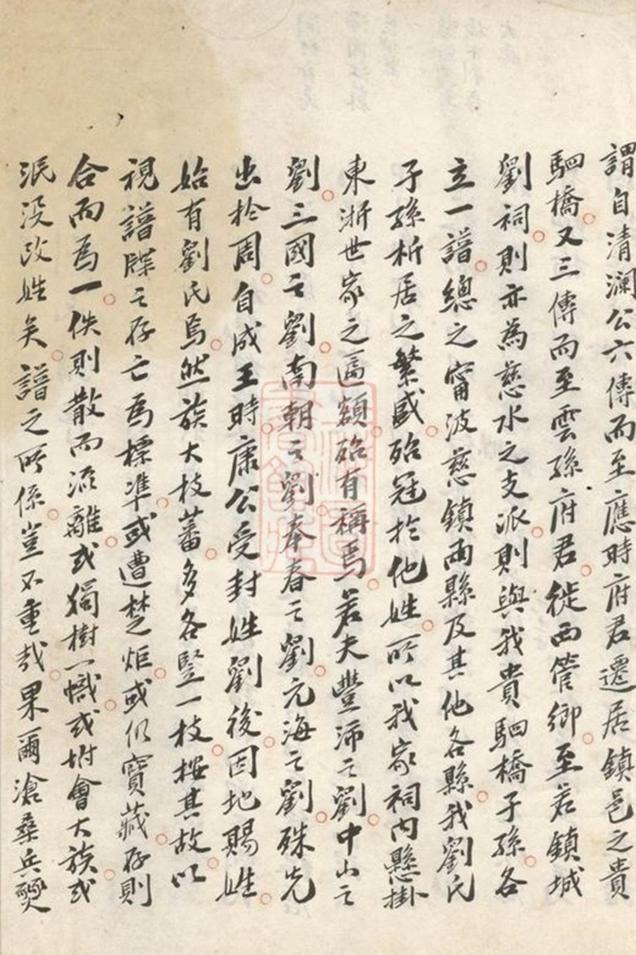 謂自清瀾公六傳而至應時府君遷居鎮邑之貴
駟橋又三傳而至雲孫府君徙西管鄉至若鎮城
劉祠則亦為慈水之支派則與我貴駟橋子孫各
立一譜總之甯波慈鎮兩縣及其他各縣我劉氏
子孫析居之繁盛殆冠於他姓所以我家祠內懸掛
東浙世家之匾額殆有稱焉若夫豐沛之劉中山之
劉三國之劉南朝之劉奉春之劉元海之劉殊先
出於周自成王時康公受封姓劉後因地賜姓
始有劉氏焉然族大枝蕃多各豎一枝按其故以
視譜牒之存亡為標準或遭楚炬或仍寶藏存則
合而為一佚則散而流離或獨樹一幟或坿會大族或
泯沒改姓矣譜之所係豈不重哉果爾滄桑兵燹